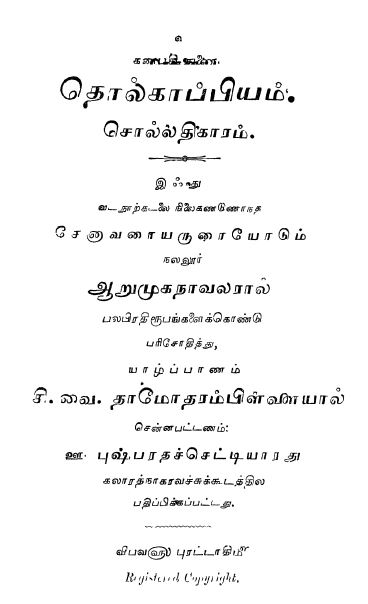 உ
கணபதி துணை.
தொல்காப்பியம்.
சொல்லதிகாரம்.
இஃது
வடநூற்கடலை நிலைகண்டுணர்ந்த
சேனாவரையருரையோடும்
நல்லூர்
ஆறுமுகநாவலரால்
பலபிரதிரூபங்களைக்கொண்டு
பரிசோதித்து,
யாழ்ப்பாணம்
சி. வை. தாமோதரம்பிள்ளையால்
சென்னபட்டணம்:
ஊ. புஷ்பரதச்செட்டியாரது
கலாரத்நாகரவச்சுக்கூடத்தில்
பதிப்பிக்கப்பட்டது.
விபவ௵ புரட்டாதி௴
Registered Copyright.